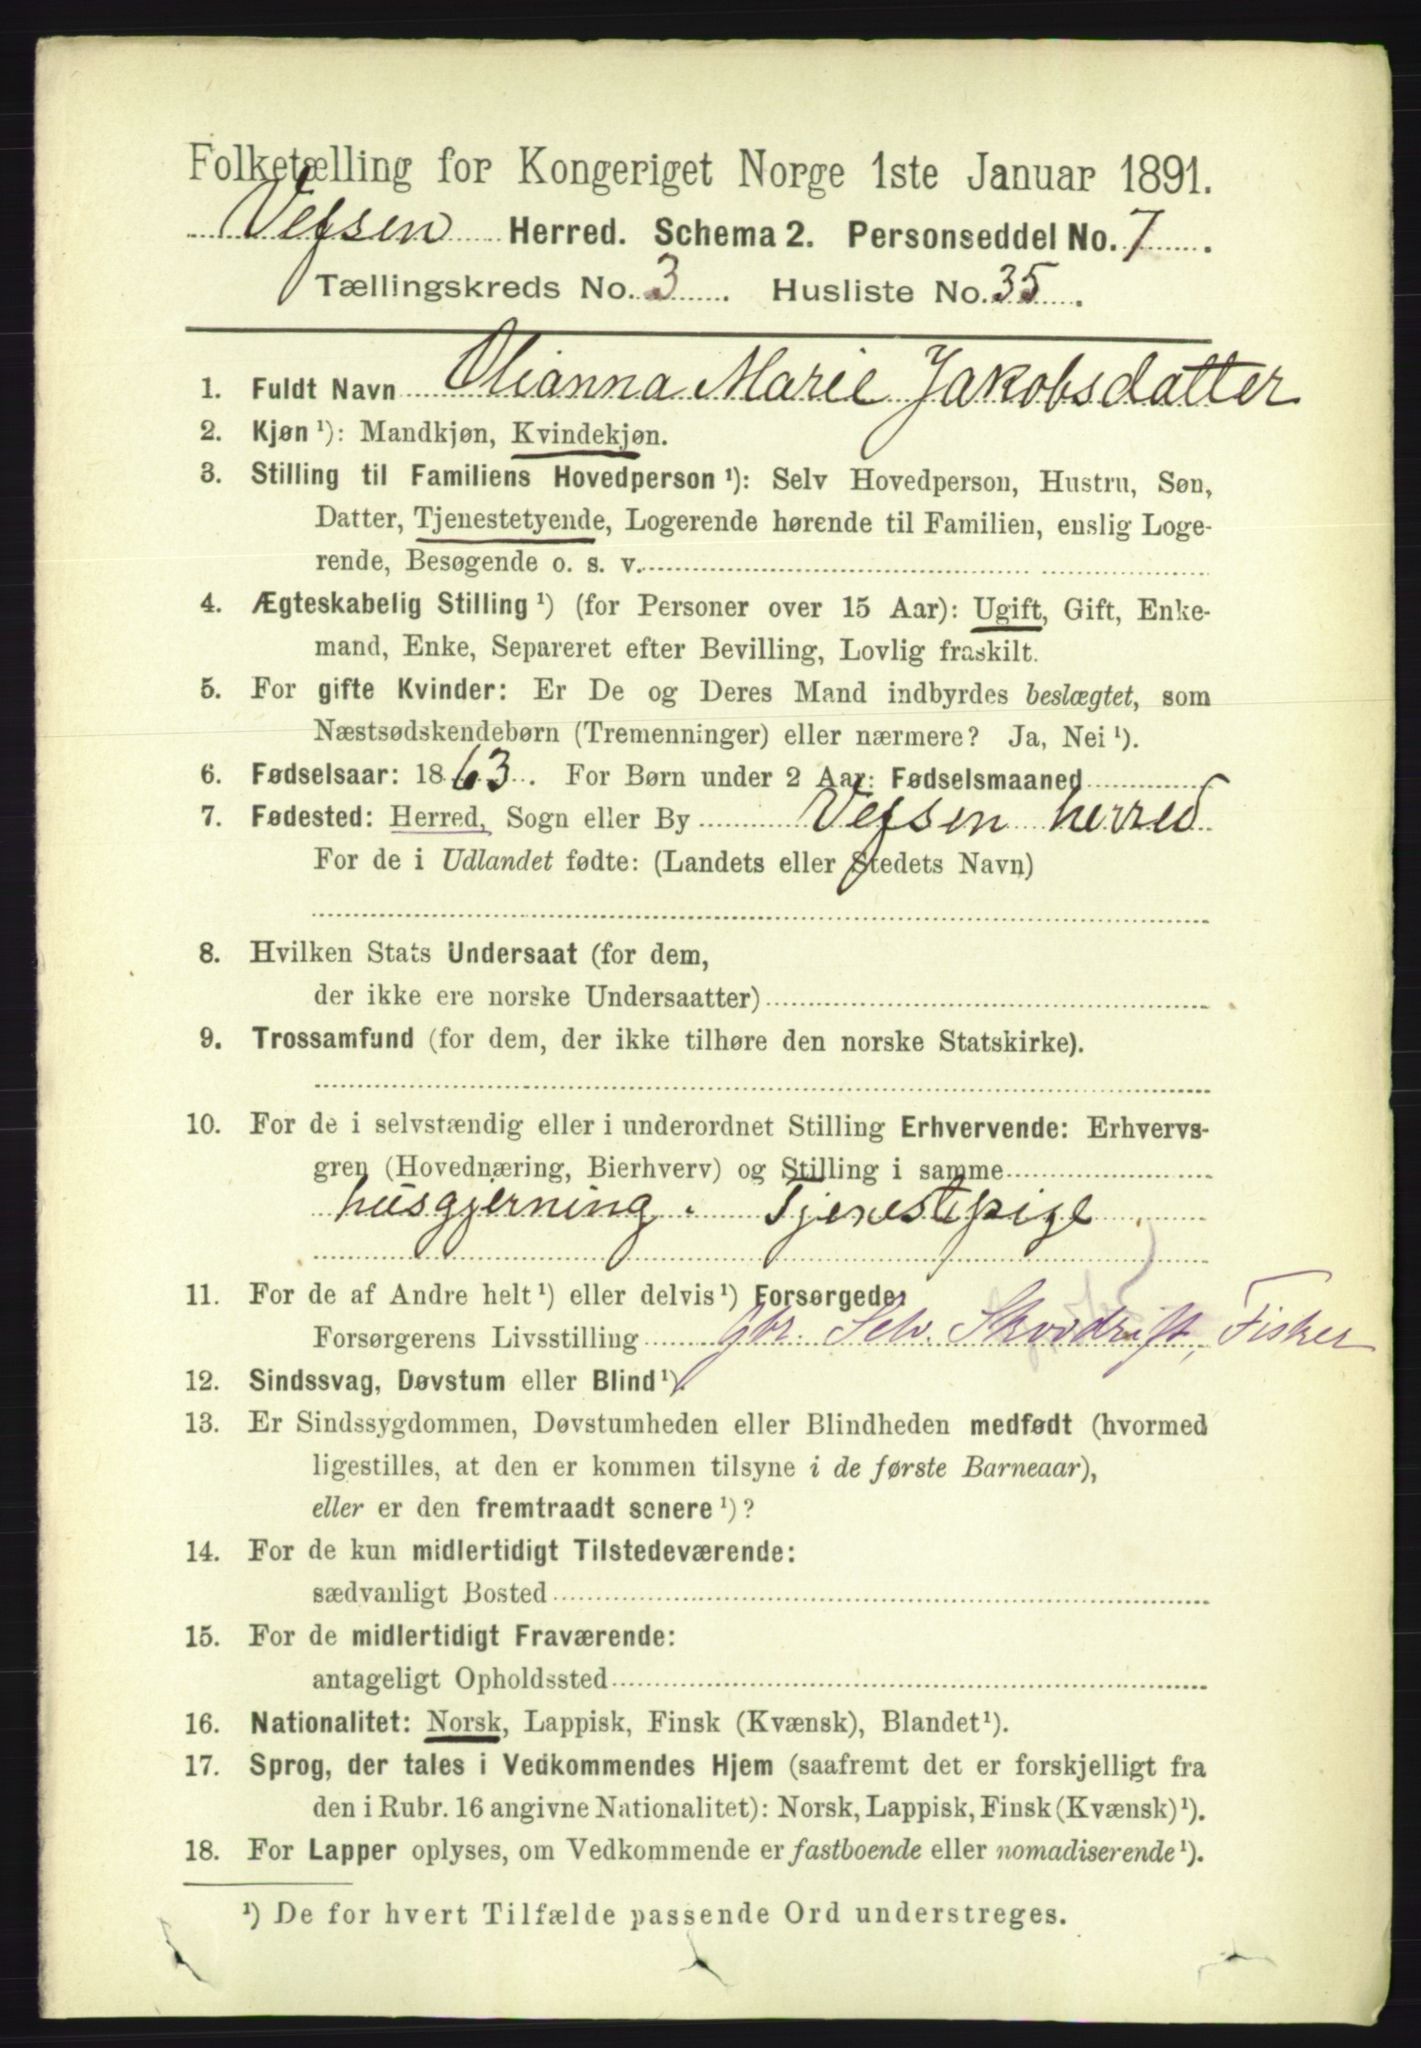 Folketælling for Kongeriget Norge 1ste Januar 1891.
Vefsen Herred. Schema 2. Personseddel No. 7.
Tællingskreds No. 3. Husliste No. 35.
1. Fuldt Navn Olianna Marie Jakobsdatter
2. Kjøn ¹): Mandkjøn, Kvindekjøn.
3. Stilling til Familiens Hovedperson ¹): Selv Hovedperson, Hustru, Søn,
Datter, Tjenestetyende, Logerende hørende til Familien, enslig Loge-
rende, Besøgende o. s. v.
4. Ægteskabelig Stilling ¹) (for Personer over 15 Aar): Ugift, Gift, Enke-
mand, Enke, Separeret efter Bevilling, Lovlig fraskilt.
5. For gifte Kvinder: Er De og Deres Mand indbyrdes beslægtet, som
Næstsødskendebørn (Tremenninger) eller nærmere? Ja, Nei ¹).
6. Fødselsaar: 1863. For Børn under 2 Aar: Fødselsmaaned
7. Fødested: Herred, Sogn eller By Vefsen herred
For de i Udlandet fødte: (Landets eller Stedets Navn)
8. Hvilken Stats Undersaat (for dem,
der ikke ere norske Undersaatter)
9. Trossamfund (for dem, der ikke tilhøre den norske Statskirke).
10. For de i selvstændig eller i underordnet Stilling Erhvervende: Erhvervs-
gren (Hovednæring, Bierhverv) og Stilling i samme
husgjerning. Tjenestepige
11. For de af Andre helt ¹) eller delvis ¹) Forsørgede:
Forsørgerens Livsstilling Gbr. Selv. Skovdrift, Fisker
12. Sindssvag, Døvstum eller Blind ¹).
13. Er Sindssygdommen, Døvstumheden eller Blindheden medfødt (hvormed
ligestilles, at den er kommen tilsyne i de første Barneaar),
eller er den fremtraadt senere ¹)?
14. For de kun midlertidigt Tilstedeværende:
sædvanligt Bosted
15. For de midlertidigt Fraværende:
antageligt Opholdssted
16. Nationalitet: Norsk, Lappisk, Finsk (Kvænsk), Blandet ¹).
17. Sprog, der tales i Vedkommendes Hjem (saafremt det er forskjelligt fra
den i Rubr. 16 angivne Nationalitet): Norsk, Lappisk, Finsk (Kvænsk) ¹).
18. For Lapper oplyses, om Vedkommende er fastboende eller nomadiserende ¹).
¹) De for hvert Tilfælde passende Ord understreges.